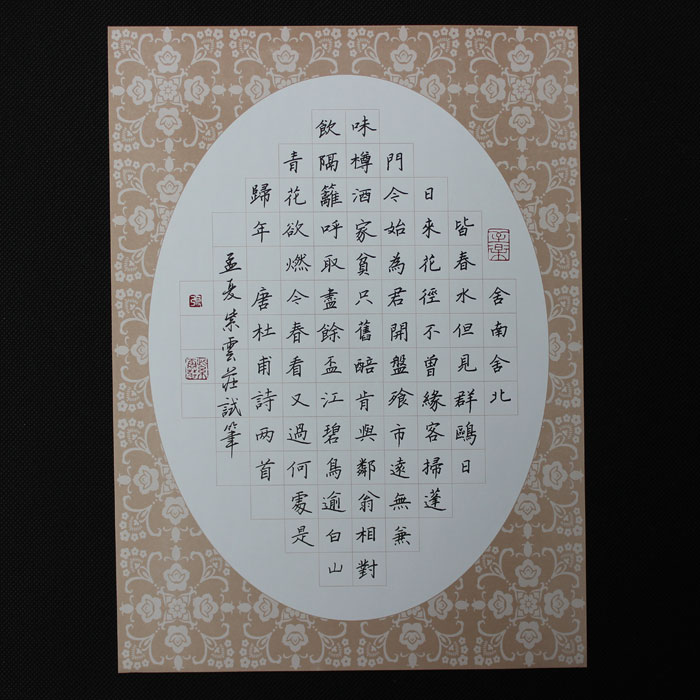 舍南舍北
皆春水但見群鷗日
日來花徑不曾緣客掃蓬
門今始為君開盤飱市遠無兼
味樽酒家貧只舊醅肯與鄰翁相對
飲隔籬呼取盡餘盃江碧鳥逾白山
青花欲燃今春看又過何處是
歸年 唐杜甫詩两首
孟夏紫雲莊試筆